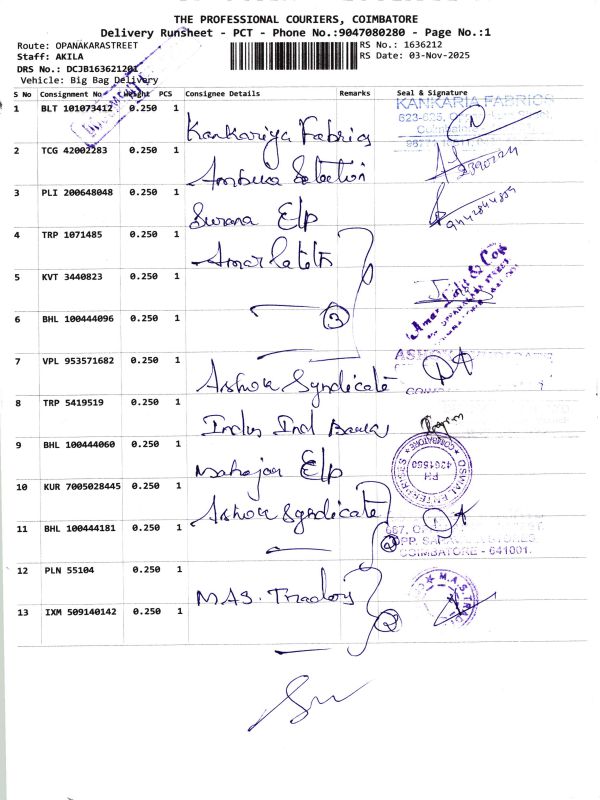 THE PROFESSIONAL COURIERS, COIMBATORE
Delivery Runsheet - PCT - Phone No.:9047080280 - Page No.:1
Route: OPANAKARASTREET
RS No.: 1636212
Staff: AKILA
RS Date: 03-Nov-2025
DRS No.: DCJB163621201
Vehicle: Big Bag Delivery
S No Consignment No Weight PCS Consignee Details Remarks Seal & Signature
1 BLT 101073412 0.250 1 Kankariya Fabrics KANKARIA FABRICS
2 TCG 42002283 0.250 1 Ambika Selection
3 PLI 200648048 0.250 1 Surana E/p 9442844859
4 TRP 1071485 0.250 1 Amar
5 KVT 3440823 0.250 1
6 BHL 100444096 0.250 1 3
7 VPL 953571682 0.250 1 Ashok Syndicate
8 TRP 5419519 0.250 1 Indus Ind Bank
9 BHL 100444060 0.250 1 Mahajan E/p OSWAL ENTERPRISES COIMBATORE PH 4361560
10 KUR 7005028445 0.250 1 Ashok Syndicate
11 BHL 100444181 0.250 1 2 COIMBATORE - 641001.
12 PLN 55104 0.250 1 M.A.S. Traders M.A.S.
13 IXM 509140142 0.250 1 2